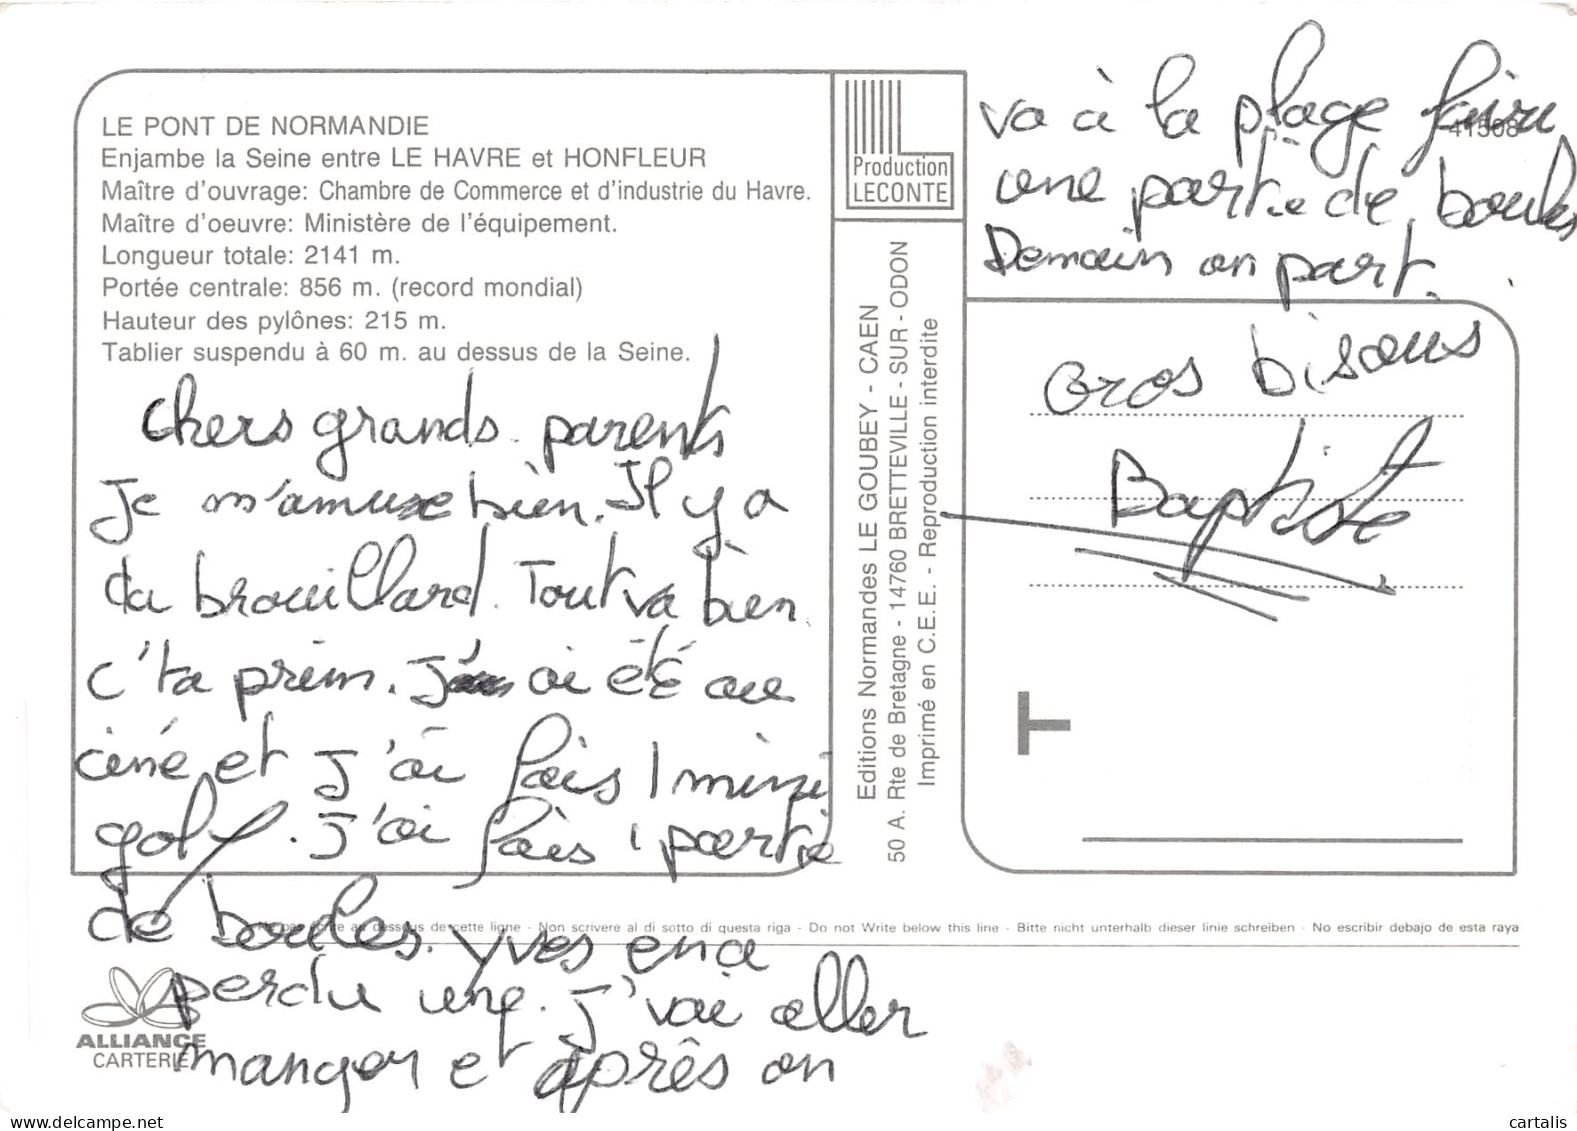 LE PONT DE NORMANDIE
Enjambe la Seine entre LE HAVRE et HONFLEUR
Maître d'ouvrage: Chambre de Commerce et d'industrie du Havre.
Maître d'oeuvre: Ministère de l'équipement.
Longueur totale: 2141 m.
Portée centrale: 856 m. (record mondial)
Hauteur des pylônes: 215 m.
Tablier suspendu à 60 m. au dessus de la Seine.
Chers grands. parents
Je m'amuse bien. Il y a
du brouillard. Tout va bien
c'ta prem. J' ai été au
ciné et J'ai fais 1 mini
golf. J'ai fais 1 partie
de boules. Yves en a
perdu une. J'vai aller
manger et après on
va à la plage faire
une partie de boules
Demain on part.
Gros bisous
Baptiste
Production
LECONTE
41508
Editions Normandes LE GOUBEY - CAEN
50 A. Rte de Bretagne - 14760 BRETTEVILLE - SUR - ODON
Imprimé en C.E.E. - Reproduction interdite
T
Ne pas écrire au dessous de cette ligne - Non scrivere al di sotto di questa riga - Do not Write below this line - Bitte nicht unterhalb dieser linie schreiben - No escribir debajo de esta raya
ALLIANCE
CARTERIE
delcampe.net
cartalis